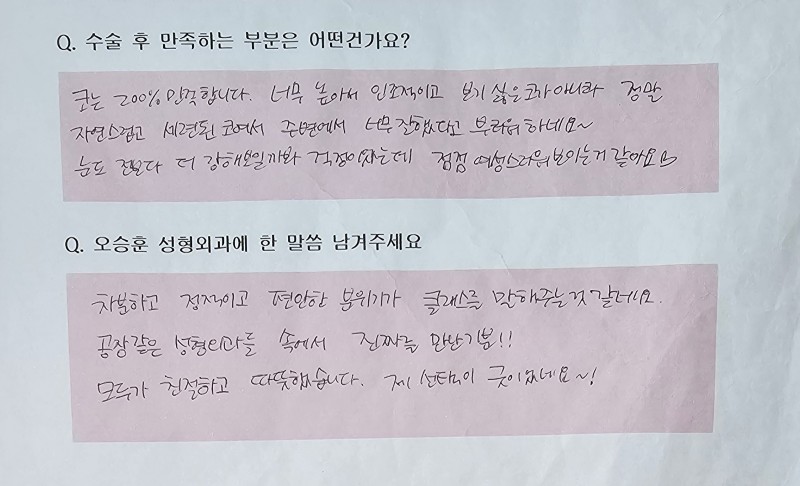 Q. 수술 후 만족하는 부분은 어떤건가요?
코는 200% 만족합니다. 너무 높아서 인조적이고 보기 싫은 코가 아니라 정말
자연스럽고 세련된 코여서 주변에서 너무 잘했다고 부러워하네요~
눈도 전보다 더 강해보일까봐 걱정이었는데 점점 여성스러워보이는거 같아요
Q. 오승훈 성형외과에 한 말씀 남겨주세요
차분하고 정적이고 편안한 분위기가 클래스를 말해주는것 같네요.
공장같은 성형외과들 속에서 진짜를 만난기분!!
모두가 친절하고 따뜻했습니다. 제 선택이 굿이었네요~!